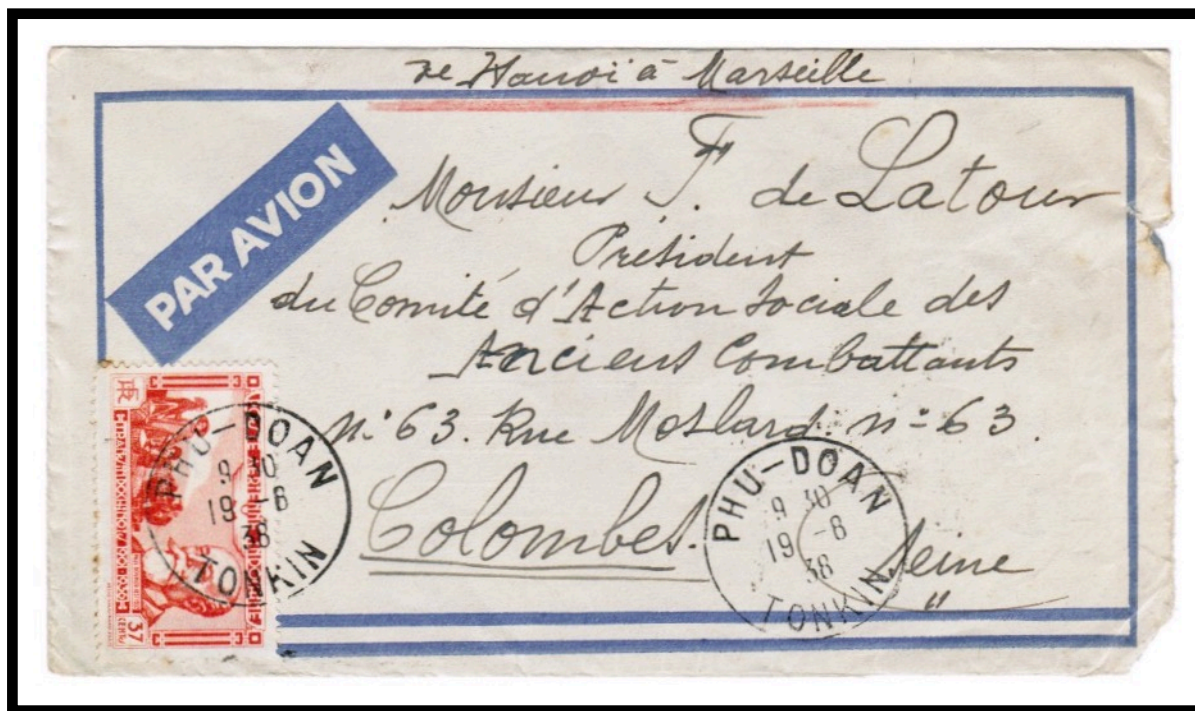 de Hanoï à Marseille
PAR AVION
Monsieur F. de Latour
Président
du Comité d'Action Sociale des
Anciens Combattants
n° 63. Rue Moslard. n° 63.
Colombes.
Seine
PHU-DOAN
9 30
19 -8
38
TONKIN
PHU-DOAN
9 30
19 -8
38
TONKIN
RF
37
CENTS